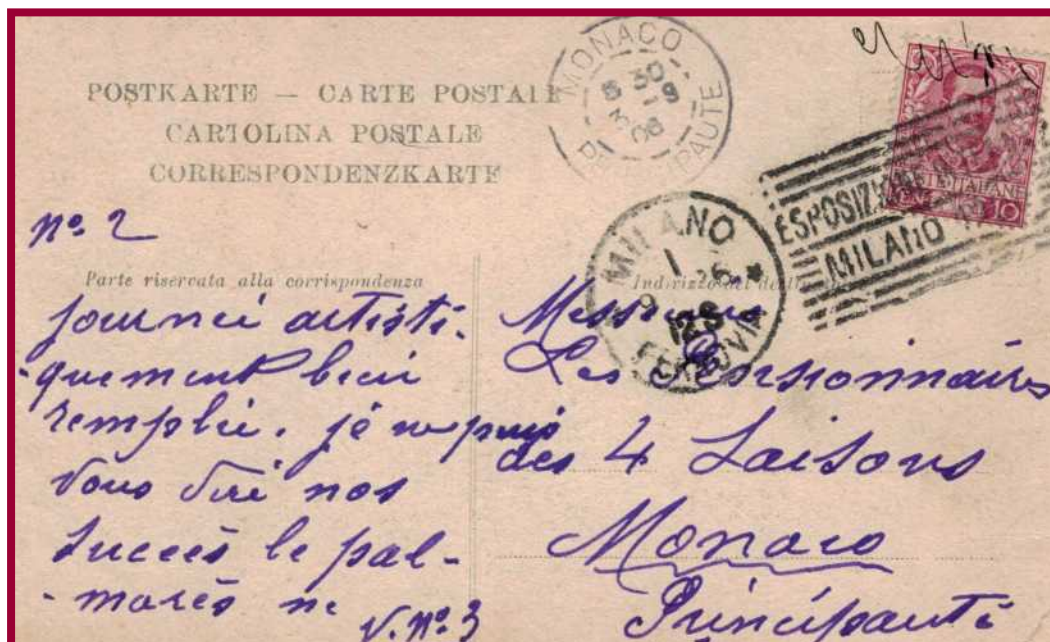 POSTKARTE — CARTE POSTALE
CARTOLINA POSTALE
CORRESPONDENZKARTE
MONACO
8 30
3 -9
06
PAUTE
10
ESPOSIZIONE
MILANO
MILANO
1 9 6
12 S
FERROVIA
nº. 2
Parte riservata alla corrispondenza
journée artisti-
-quement bien
remplie. je ne puis
vous dire nos
succès le pal-
-marès ne
V. nº. 3
Indirizzo del destinatario
Messieurs
Les Pensionnaires
des 4 Saisons
Monaco
Principauté